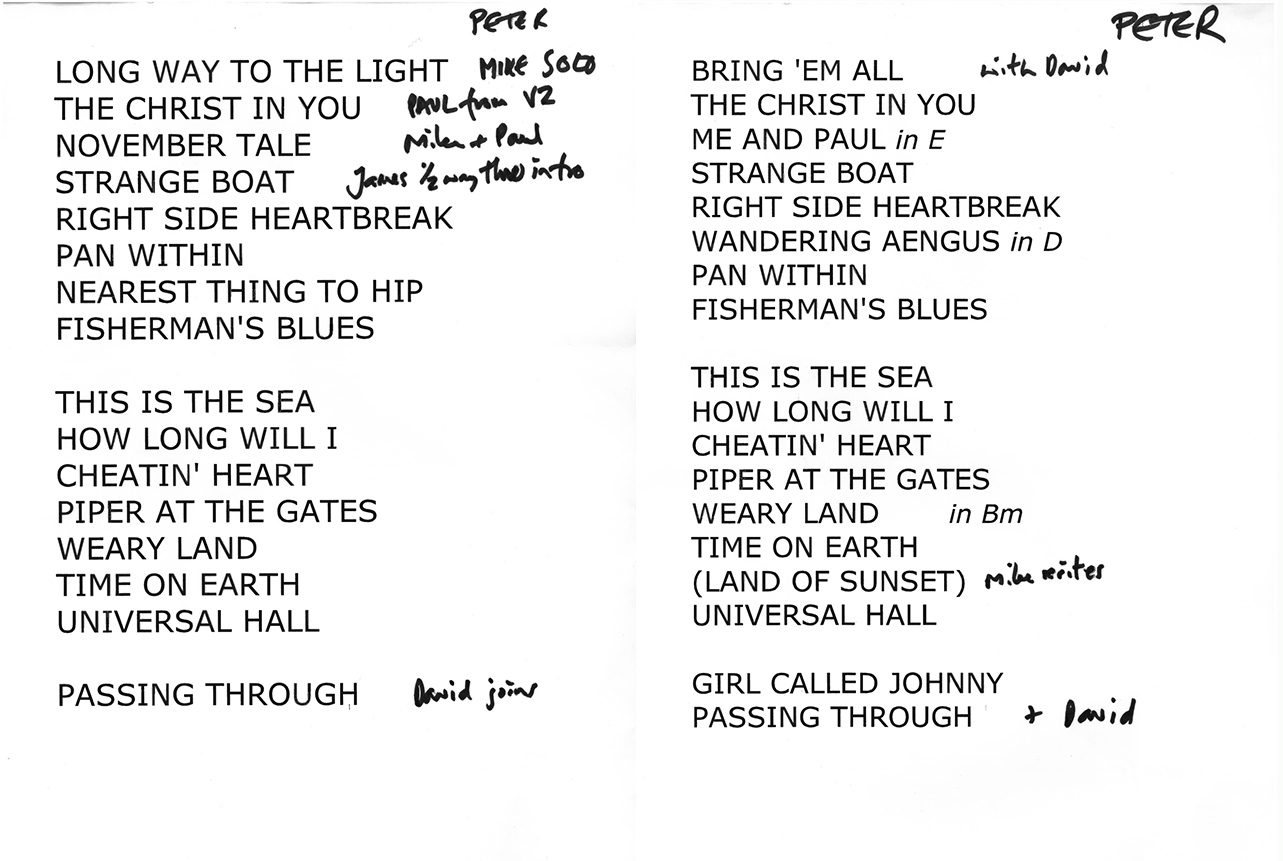 PETER
LONG WAY TO THE LIGHT MIKE SOLO
THE CHRIST IN YOU PAUL from V2
NOVEMBER TALE Mike + Paul
STRANGE BOAT James 1/2 way thro intro
RIGHT SIDE HEARTBREAK
PAN WITHIN
NEAREST THING TO HIP
FISHERMAN'S BLUES
THIS IS THE SEA
HOW LONG WILL I
CHEATIN' HEART
PIPER AT THE GATES
WEARY LAND
TIME ON EARTH
UNIVERSAL HALL
PASSING THROUGH David joins
PETER
BRING 'EM ALL with David
THE CHRIST IN YOU
ME AND PAUL in E
STRANGE BOAT
RIGHT SIDE HEARTBREAK
WANDERING AENGUS in D
PAN WITHIN
FISHERMAN'S BLUES
THIS IS THE SEA
HOW LONG WILL I
CHEATIN' HEART
PIPER AT THE GATES
WEARY LAND in Bm
TIME ON EARTH
(LAND OF SUNSET) Mike recites
UNIVERSAL HALL
GIRL CALLED JOHNNY
PASSING THROUGH + David